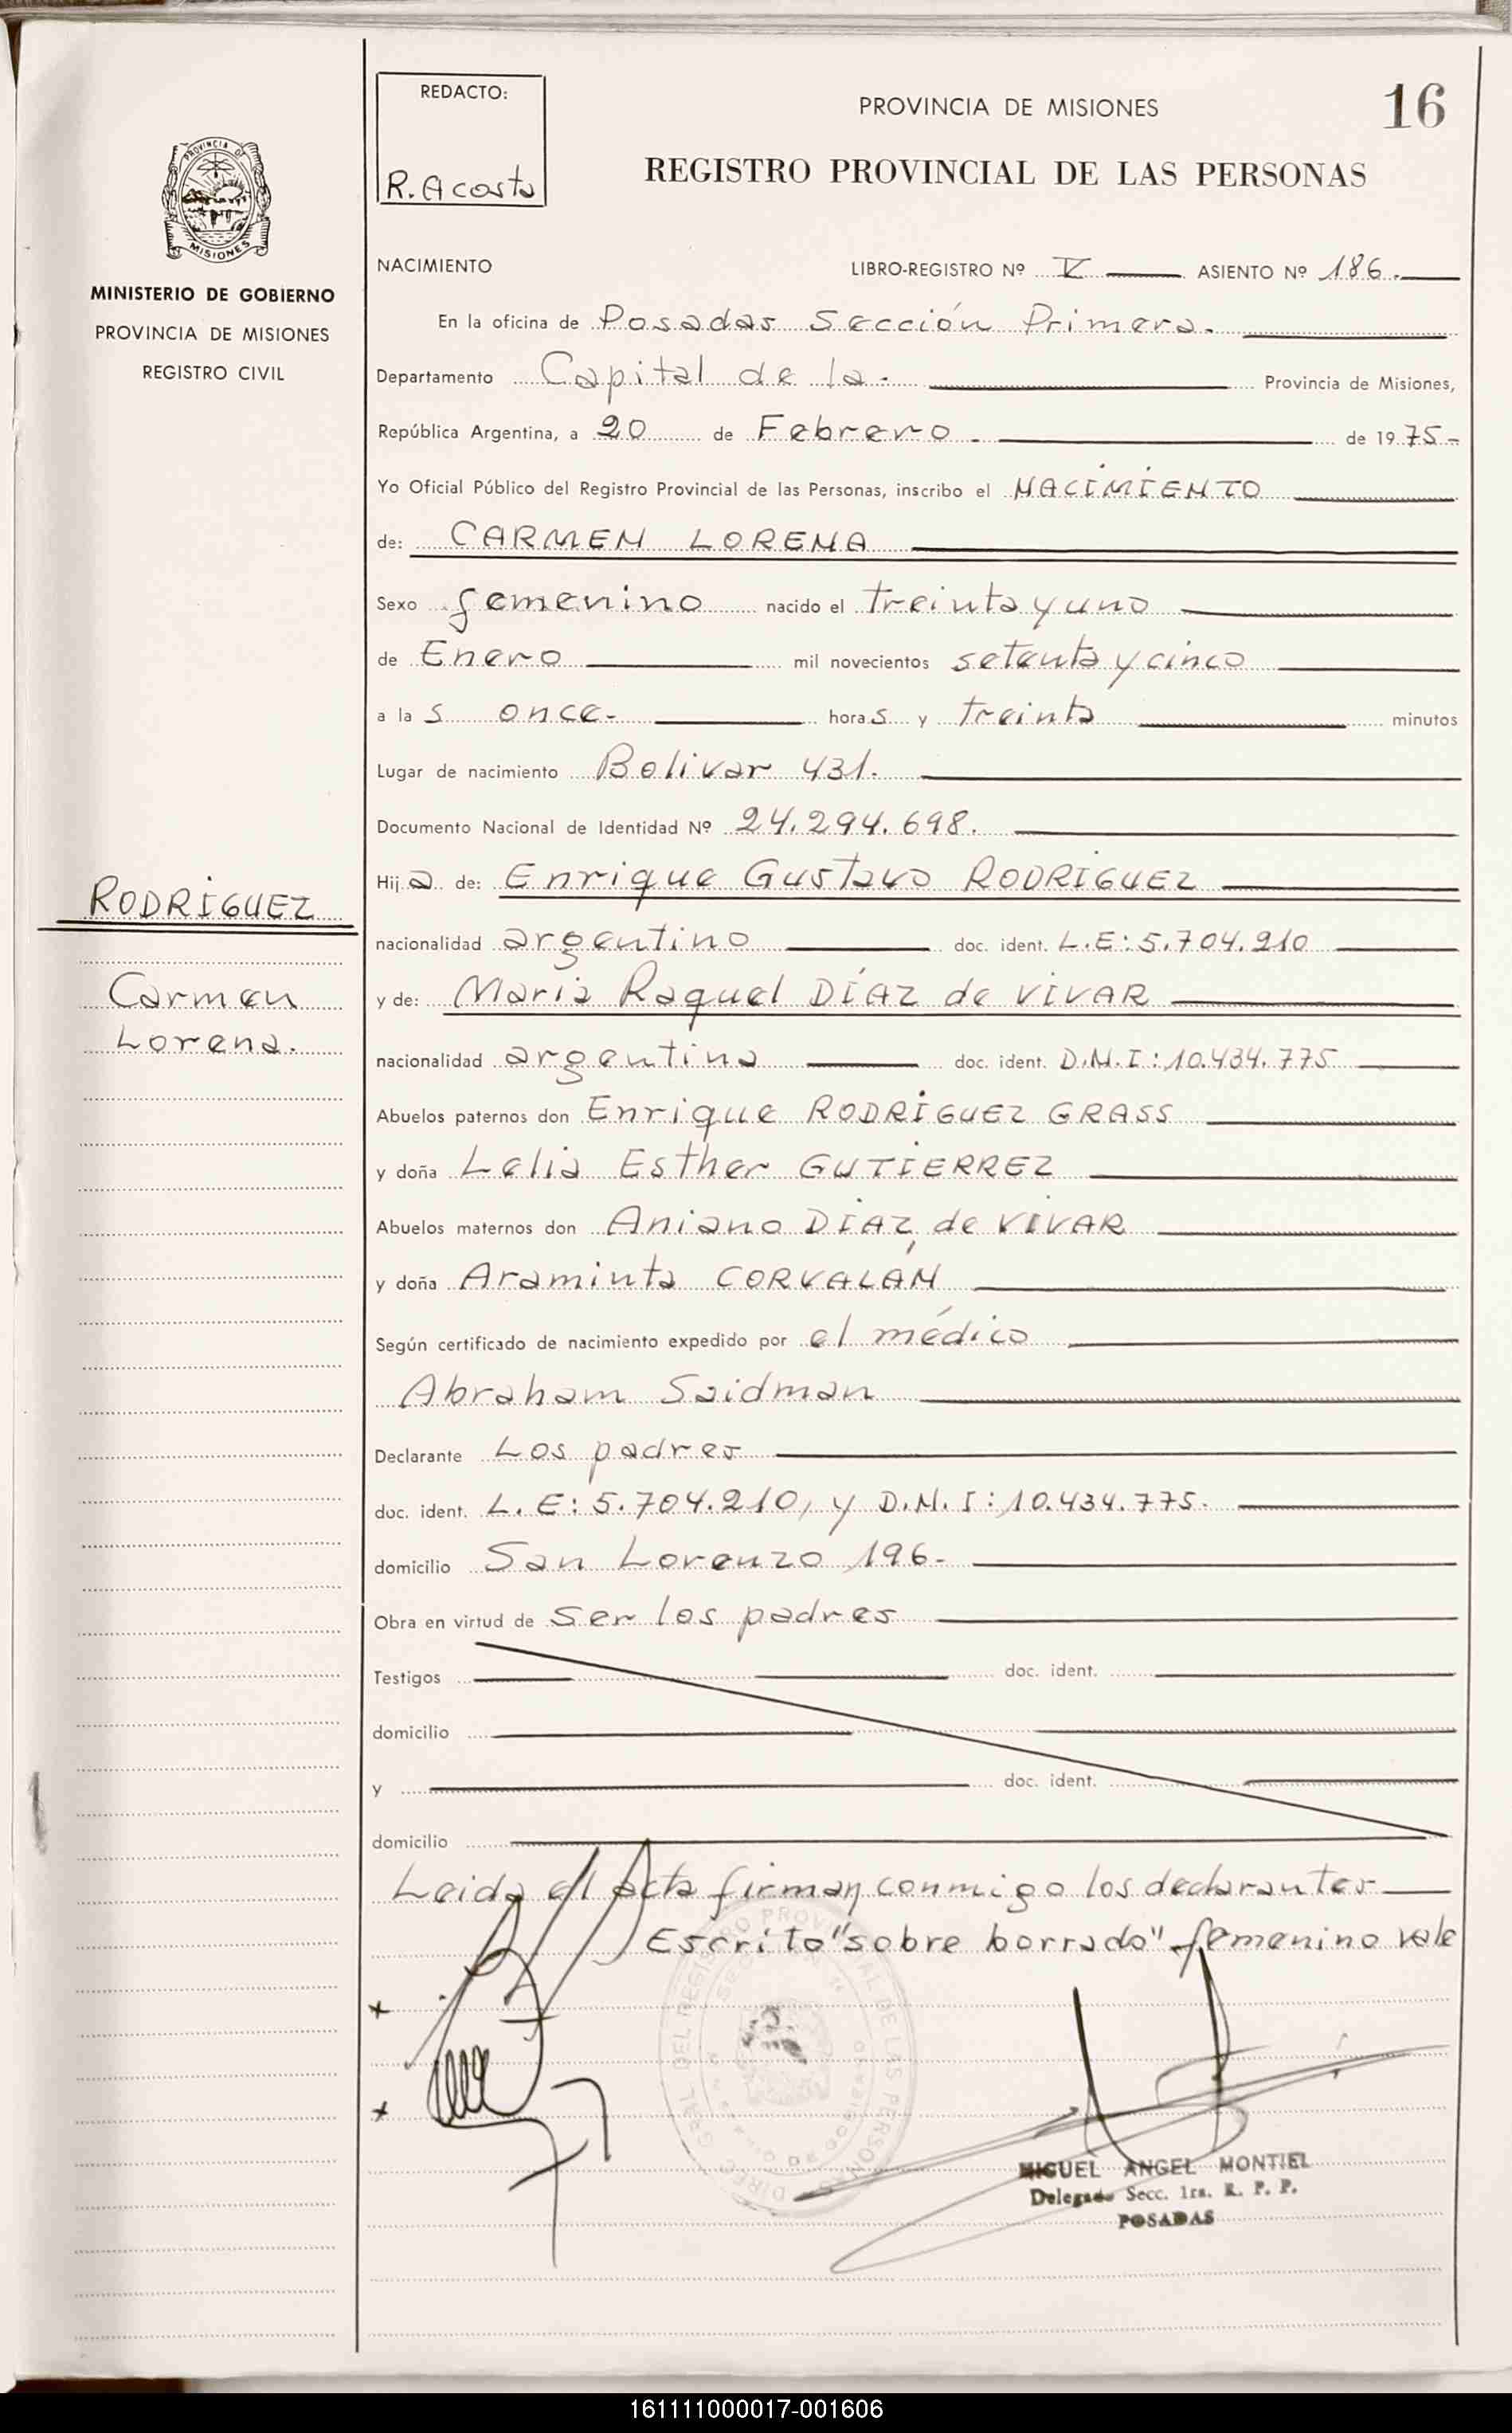 REDACTO:
R. Acosta
PROVINCIA DE MISIONES
16
REGISTRO PROVINCIAL DE LAS PERSONAS
PROVINCIA DE
MISIONES
MINISTERIO DE GOBIERNO
PROVINCIA DE MISIONES
REGISTRO CIVIL
NACIMIENTO LIBRO-REGISTRO Nº V ASIENTO Nº 186.
En la oficina de Posadas Sección Primera.
Departamento Capital de la. Provincia de Misiones,
República Argentina, a 20 de Febrero. de 1975-
Yo Oficial Público del Registro Provincial de las Personas, inscribo el NACIMIENTO
de: CARMEN LORENA
Sexo femenino nacido el treinta y uno
de Enero mil novecientos setenta y cinco
a las once- horas y treinta minutos
Lugar de nacimiento Bolivar 431.
Documento Nacional de Identidad Nº 24.294.698.
Hija de: Enrique Gustavo RODRIGUEZ
RODRIGUEZ
nacionalidad argentino doc. ident. L.E: 5.704.210
Carmen
y de: Maria Raquel DÍAZ de VIVAR
Lorena.
nacionalidad argentina doc. ident. D.N.I: 10.434.775
Abuelos paternos don Enrique RODRIGUEZ GRASS
y doña Lelia Esther GUTIERREZ
Abuelos maternos don Aniano DIAZ de VIVAR
y doña Araminta CORVALÁN
Según certificado de nacimiento expedido por el médico
Abraham Saidman
Declarante Los padres
doc. ident. L.E: 5.704.210, y D.N.I: 10.434.775.
domicilio San Lorenzo 196-
Obra en virtud de ser los padres
Testigos doc. ident.
domicilio
y doc. ident.
domicilio
Leida el acta firman conmigo los declarantes
Escrito "sobre borrado" femenino vale
x
x
MIGUEL ANGEL MONTIEL
Delegado Secc. 1ra. R. P. P.
POSADAS
161111000017-001606